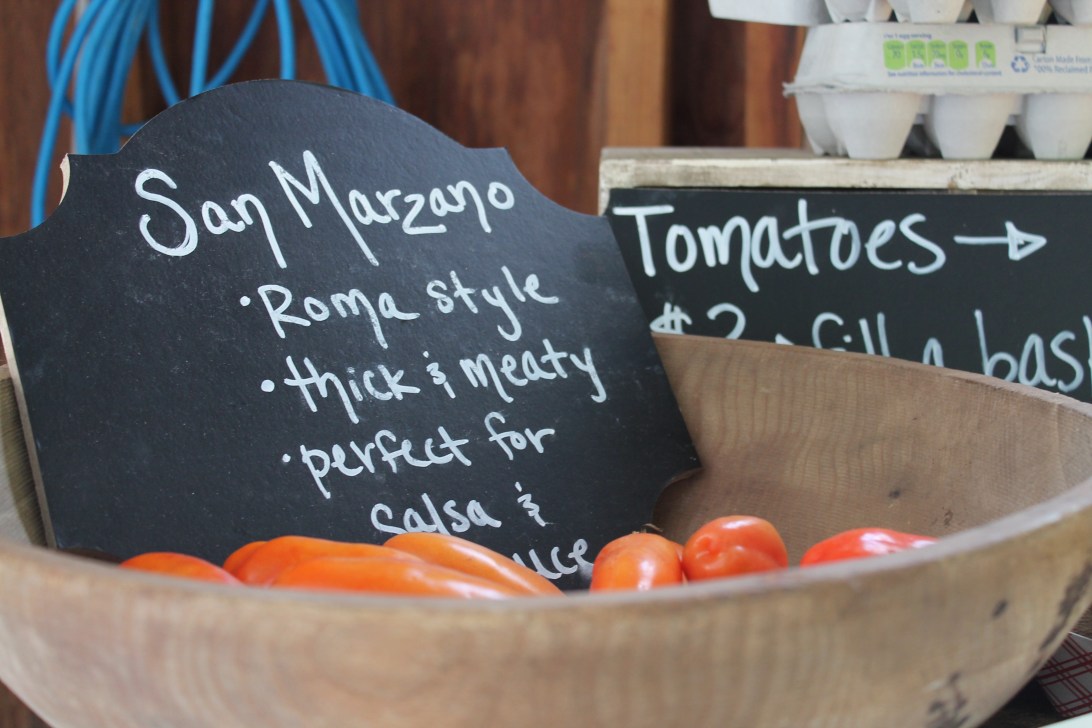 San Marzano
• Roma style
• thick & meaty
• perfect for
salsa &
uce
Tomatoes →
$2 fill a bask
Carton Made From
100% Reclaimed